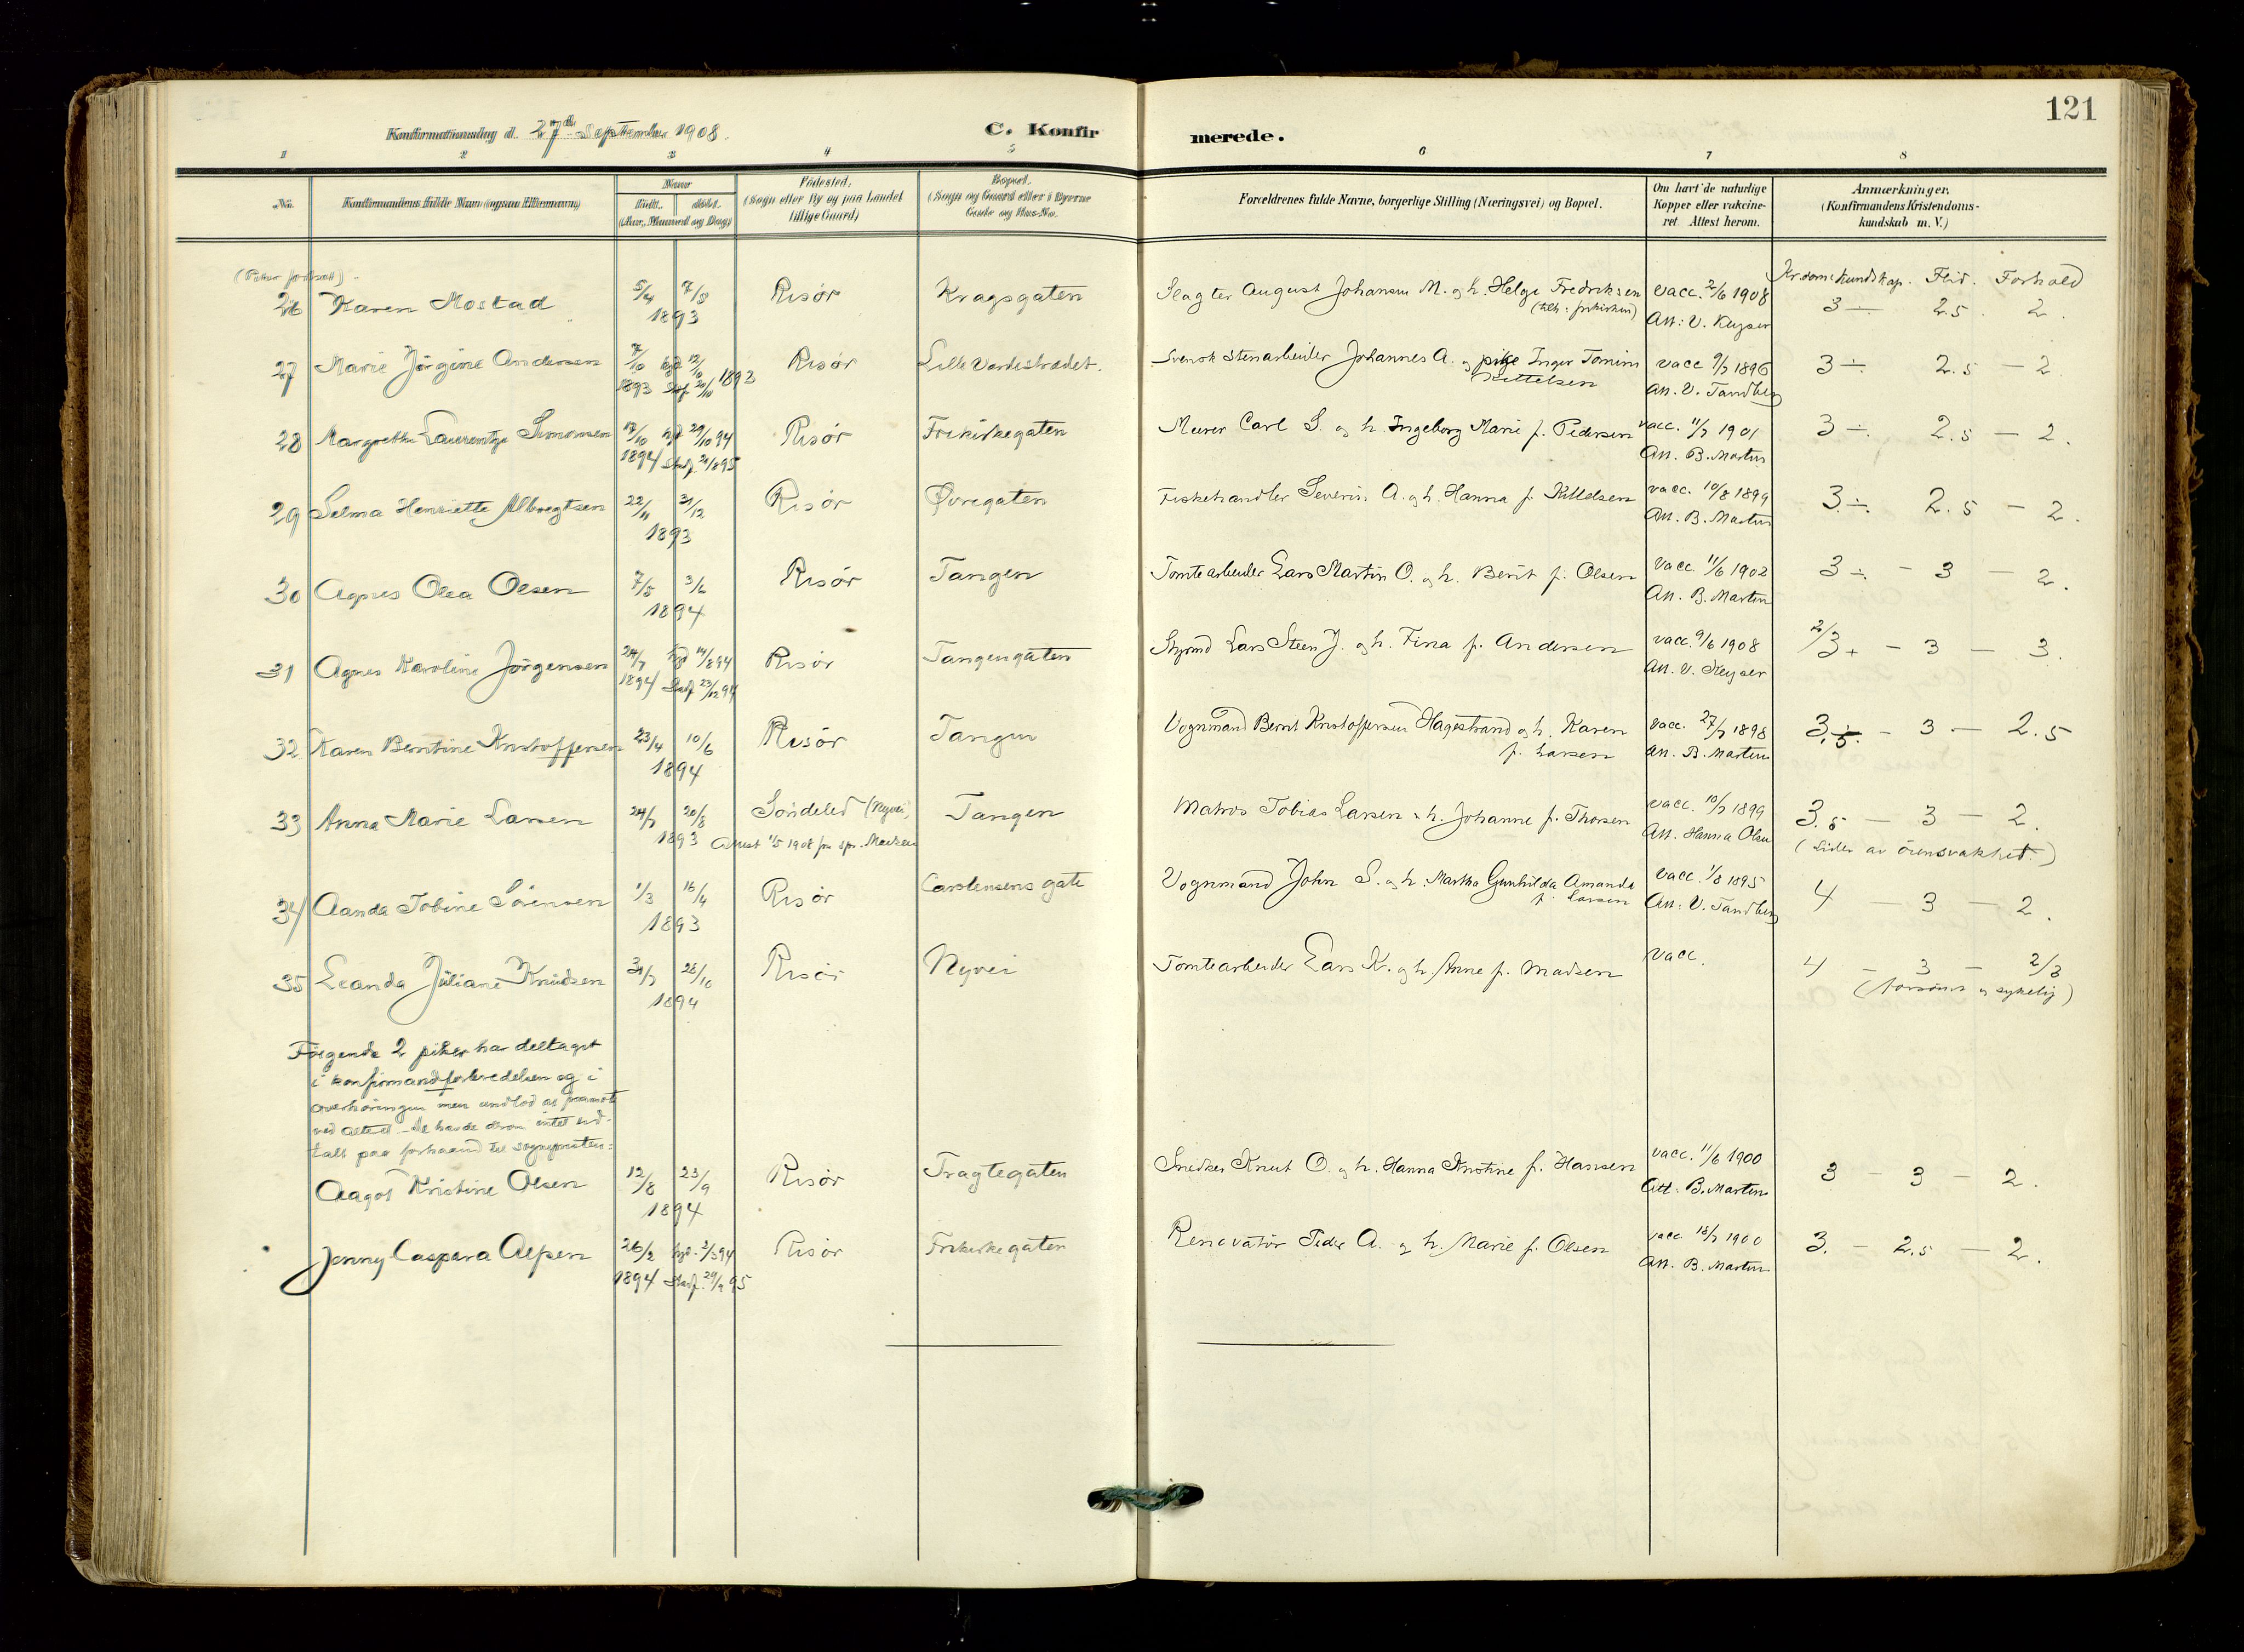 121
Konfirmationsdag d. 27de September 1908.
C. Konfirmerede.
1 2 3 4 5 6 7 8
No.
Konfirmandens fulde Navn (ogsaa Tilnavn)
Naar
født. døbt.
(Aar, Maaned og Dag)
Fødested.
(Sogn eller By og paa Landet
tillige Gaard)
Bopæl.
(Sogn og Gaard eller i Byerne
Gade og Hus-No.
Forældrenes fulde Navne, borgerlige Stilling (Næringsvei) og Bopæl.
Om havt de naturlige
Kopper eller vakcine-
ret. Attest herom.
Anmærkninger.
(Konfirmandens Kristendoms-
kundskab m. V.)
(Piker fortsatt).
Kr.domskundskap. Flid. Forhold
26 Karen Mostad 5/4 7/5 1893 Risør Kragsgaten Slagter August Johansen M. og h. Helga Fredriksen vacc. 2/6 1908 3 ÷ 2.5 2.
(tilh. frikirken) Att: V. Keyser
27 Marie Jørgine Andersen 7/10 1893 hjd 12/10 Stadf. 20/10 1893 Risør Lille Vardestrædet. Svensk Stenarbeider Johannes A. og pige Inger Tomine vacc 9/7 1896 3 ÷ 2.5 - 2.
Kittelsen Att. V. Tandberg
28 Margrethe Laurentze Simonsen 17/10 1894 hjd 29/10 94 Stadf. 21/8 95 Risør Frikirkegaten Murer Carl S. og h. Ingeborg Marie f. Pedersen vacc. 11/7 1901 3 ÷. 2.5 - 2.
Att. B. Martens
29 Selma Henriette Albregtsen 22/11 31/12 1893 Risør Øvregaten Fiskehandler Severin A. og h. Hanna f. Kittelsen vacc. 10/8 1899 3 ÷. 2.5 - 2.
Att. B. Martens
30 Agnes Olea Olsen 7/5 3/6 1894 Risør Tangen Tomtearbeider Lars Martin O. og h. Berit f. Olsen vacc. 11/6 1902 3 ÷ - 3 - 2.
Att. B. Martens
31 Agnes Karoline Jørgensen 24/7 1894 hjd 14/8 94 Stadf. 23/12 94 Risør Tangengaten Styrmd Lars Steen J. og h. Fina f. Andersen vacc. 9/6 1908 2/3+ - 3 - 3.
Att. V. Keyser
32 Karen Berntine Kristoffersen 23/4 10/6 1894 Risør Tangen Vognmand Bernt Kristoffersen Hagestrand og h. Karen vacc. 27/7 1898 3.5. - 3 - 2.5
f. Larsen Att. B. Martens
33 Anna Marie Larsen 24/7 20/8 1893 Søndeled (Nyvei) Tangen Matros Tobias Larsen & h. Johanne f. Thorsen vacc. 10/7 1899 3.5 - 3 - 2.
Attest 1/5 1908 fra spr. Att. Hanna Olsen (Lider av øiensvakhet.)
34 Aanda Tobine Sørensen 1/3 16/4 1893 Risør Carstensens gate Vognmand John S. og h. Martha Gunhilda Amanda vacc. 1/8 1895 4 - 3 - 2.
f. Larsen Att: V. Tandberg
35 Leanda Juliane Knudsen 31/7 28/10 1894 Risør Nyvei Tomtearbeider Lars K. og h. Anne f. Madsen vacc. 4 - 3 - 2/3
(forsømt og sykelig)
Følgende 2 piker har deltaget
i konfirmandforberedelsen og i
overhøringen men undlod at fremstå
ved alteret. - De havde derom intet ud-
talt paa forhaand til sognepresten:
Aagot Kristine Olsen 12/8 23/9 1894 Risør Tragtegaten Snedker Knut O. og h. Hanna Kristine f. Hansen vacc. 11/6 1900 3 - 3 - 2.
Att: B. Martens
Jenny Caspara Alfsen 26/2 1894 hjd. 2/3 94 Stadf. 29/9 95 Risør Frikirkegaten Renovatør Peder A. og h. Marie f. Olsen vacc 18/7 1900 3. - 2.5 - 2.
Att. B. Martens